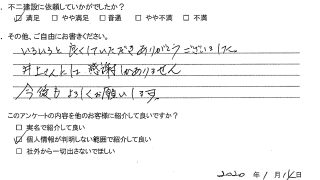 . 不二建設に依頼していかがでしたか？
☑ 満足 □ やや満足 □ 普通 □ やや不満 □ 不満
. その他、ご自由にお書きください。
いろいろと良くしていただきありがとうございました。
井上さんには感謝しかありません
今後もよろしくお願いします。
このアンケートの内容を他のお客様に紹介して良いですか？
□ 実名で紹介して良い
☑ 個人情報が判明しない範囲で紹介して良い
□ 社外から一切出さないでほしい
2020年 1月 14日